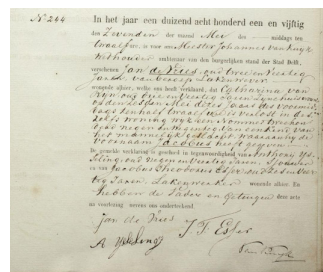 No 244
In het jaar een duizend acht honderd een en vijftig
den Zevenden der maand Mei des middags ten
twaalf ure, is voor ons Meester Johannes van Kuyk
Wethouder ambtenaar van den burgerlijken stand der Stad Delft,
verschenen Jan de Vries, oud twee en Veertig
Jaren, van beroep Lakenwever
wonende alhier, welke ons heeft verklaard, dat Catharina van
Ryn oud drie en Veertig Jaren zijne huisvrouw
op den zesden Mei dezes jaars des voormid-
dags ten half twaalf ure is verlost in
zelfs woning wijk
van
het mannelijk geslacht, waaraan hij de
voornaam Jacobus heeft gegeven
De gemelde verklaring is geschied in tegenwoordigheid van Anthony Ys-
seling, oud negen en Veertig Jaren,
en van Jacobus Theodorus Esser, oud en Veer-
tig Jaren, Lakenwerker wonende alhier. En
hebben de Vader en Getuigen deze acte
na voorlezing nevens ons onderteekend.
Jan de Vries
A Ysseling J. T. Esser
Van Kuyk